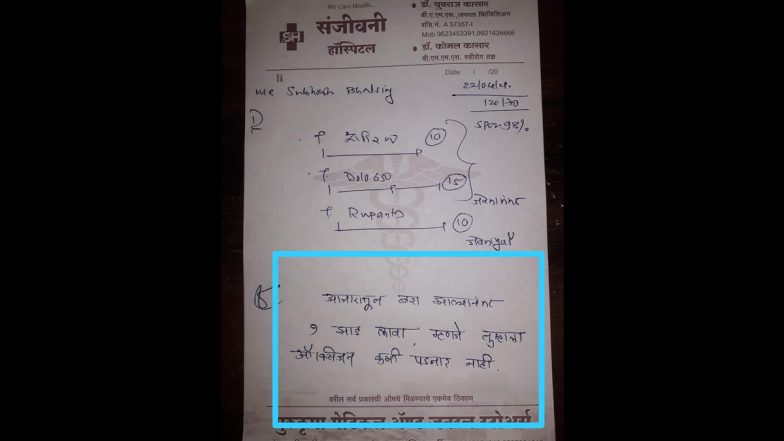 We Care Health...
संजीवनी
हॉस्पिटल
SH
डॉ. युवराज कासार
बी.ए.एम.एस.,जनरल फिजिशियन
रजि.नं. A 57357-I
Mob.9623453391,9021426666
डॉ. कोमल कासार
बी.एच.एम.एस. स्त्रीरोग तज्ञ
Date: / /20
22/04/21
120/70
SPO2-98%
Mr Subhash
10
T Dolo 650
15
T
10
आजारातून बरा झाल्यानंतर
१ झाड लावा, म्हणजे तुम्हाला
ऑक्सिजन कमी पडणार नाही.
वरील सर्व प्रकारची औषधे मिळण्याचे एकमेव ठिकाण